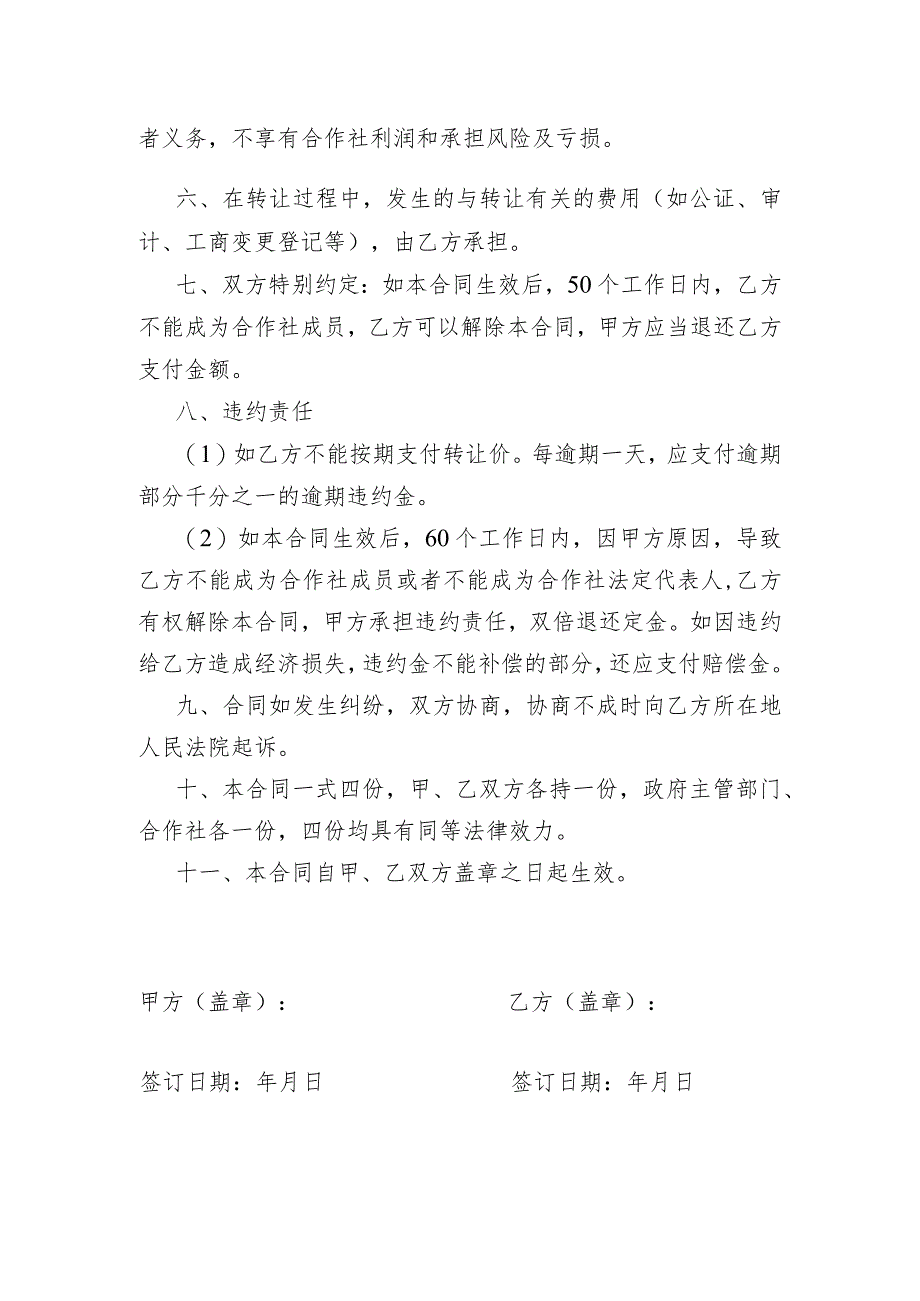 者义务，不享有合作社利润和承担风险及亏损。
六、在转让过程中，发生的与转让有关的费用（如公证、审
计、工商变更登记等），由乙方承担。
七、双方特别约定：如本合同生效后，50个工作日内，乙方
不能成为合作社成员，乙方可以解除本合同，甲方应当退还乙方
支付金额。
八、违约责任
（1）如乙方不能按期支付转让价。每逾期一天，应支付逾期
部分千分之一的逾期违约金。
（2）如本合同生效后，60个工作日内，因甲方原因，导致
乙方不能成为合作社成员或者不能成为合作社法定代表人,乙方
有权解除本合同，甲方承担违约责任，双倍退还定金。如因违约
给乙方造成经济损失，违约金不能补偿的部分，还应支付赔偿金。
九、合同如发生纠纷，双方协商，协商不成时向乙方所在地
人民法院起诉。
十、本合同一式四份，甲、乙双方各持一份，政府主管部门、
合作社各一份，四份均具有同等法律效力。
十一、本合同自甲、乙双方盖章之日起生效。
甲方（盖章）： 乙方（盖章）：
签订日期：年月日 签订日期：年月日